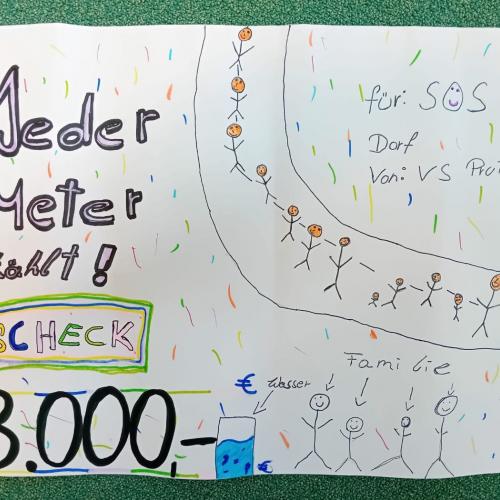 Jeder
Meter
zählt!
SCHECK
3.000,-
€
Wasser
€
für: SOS
Dorf
Von: VS
Familie